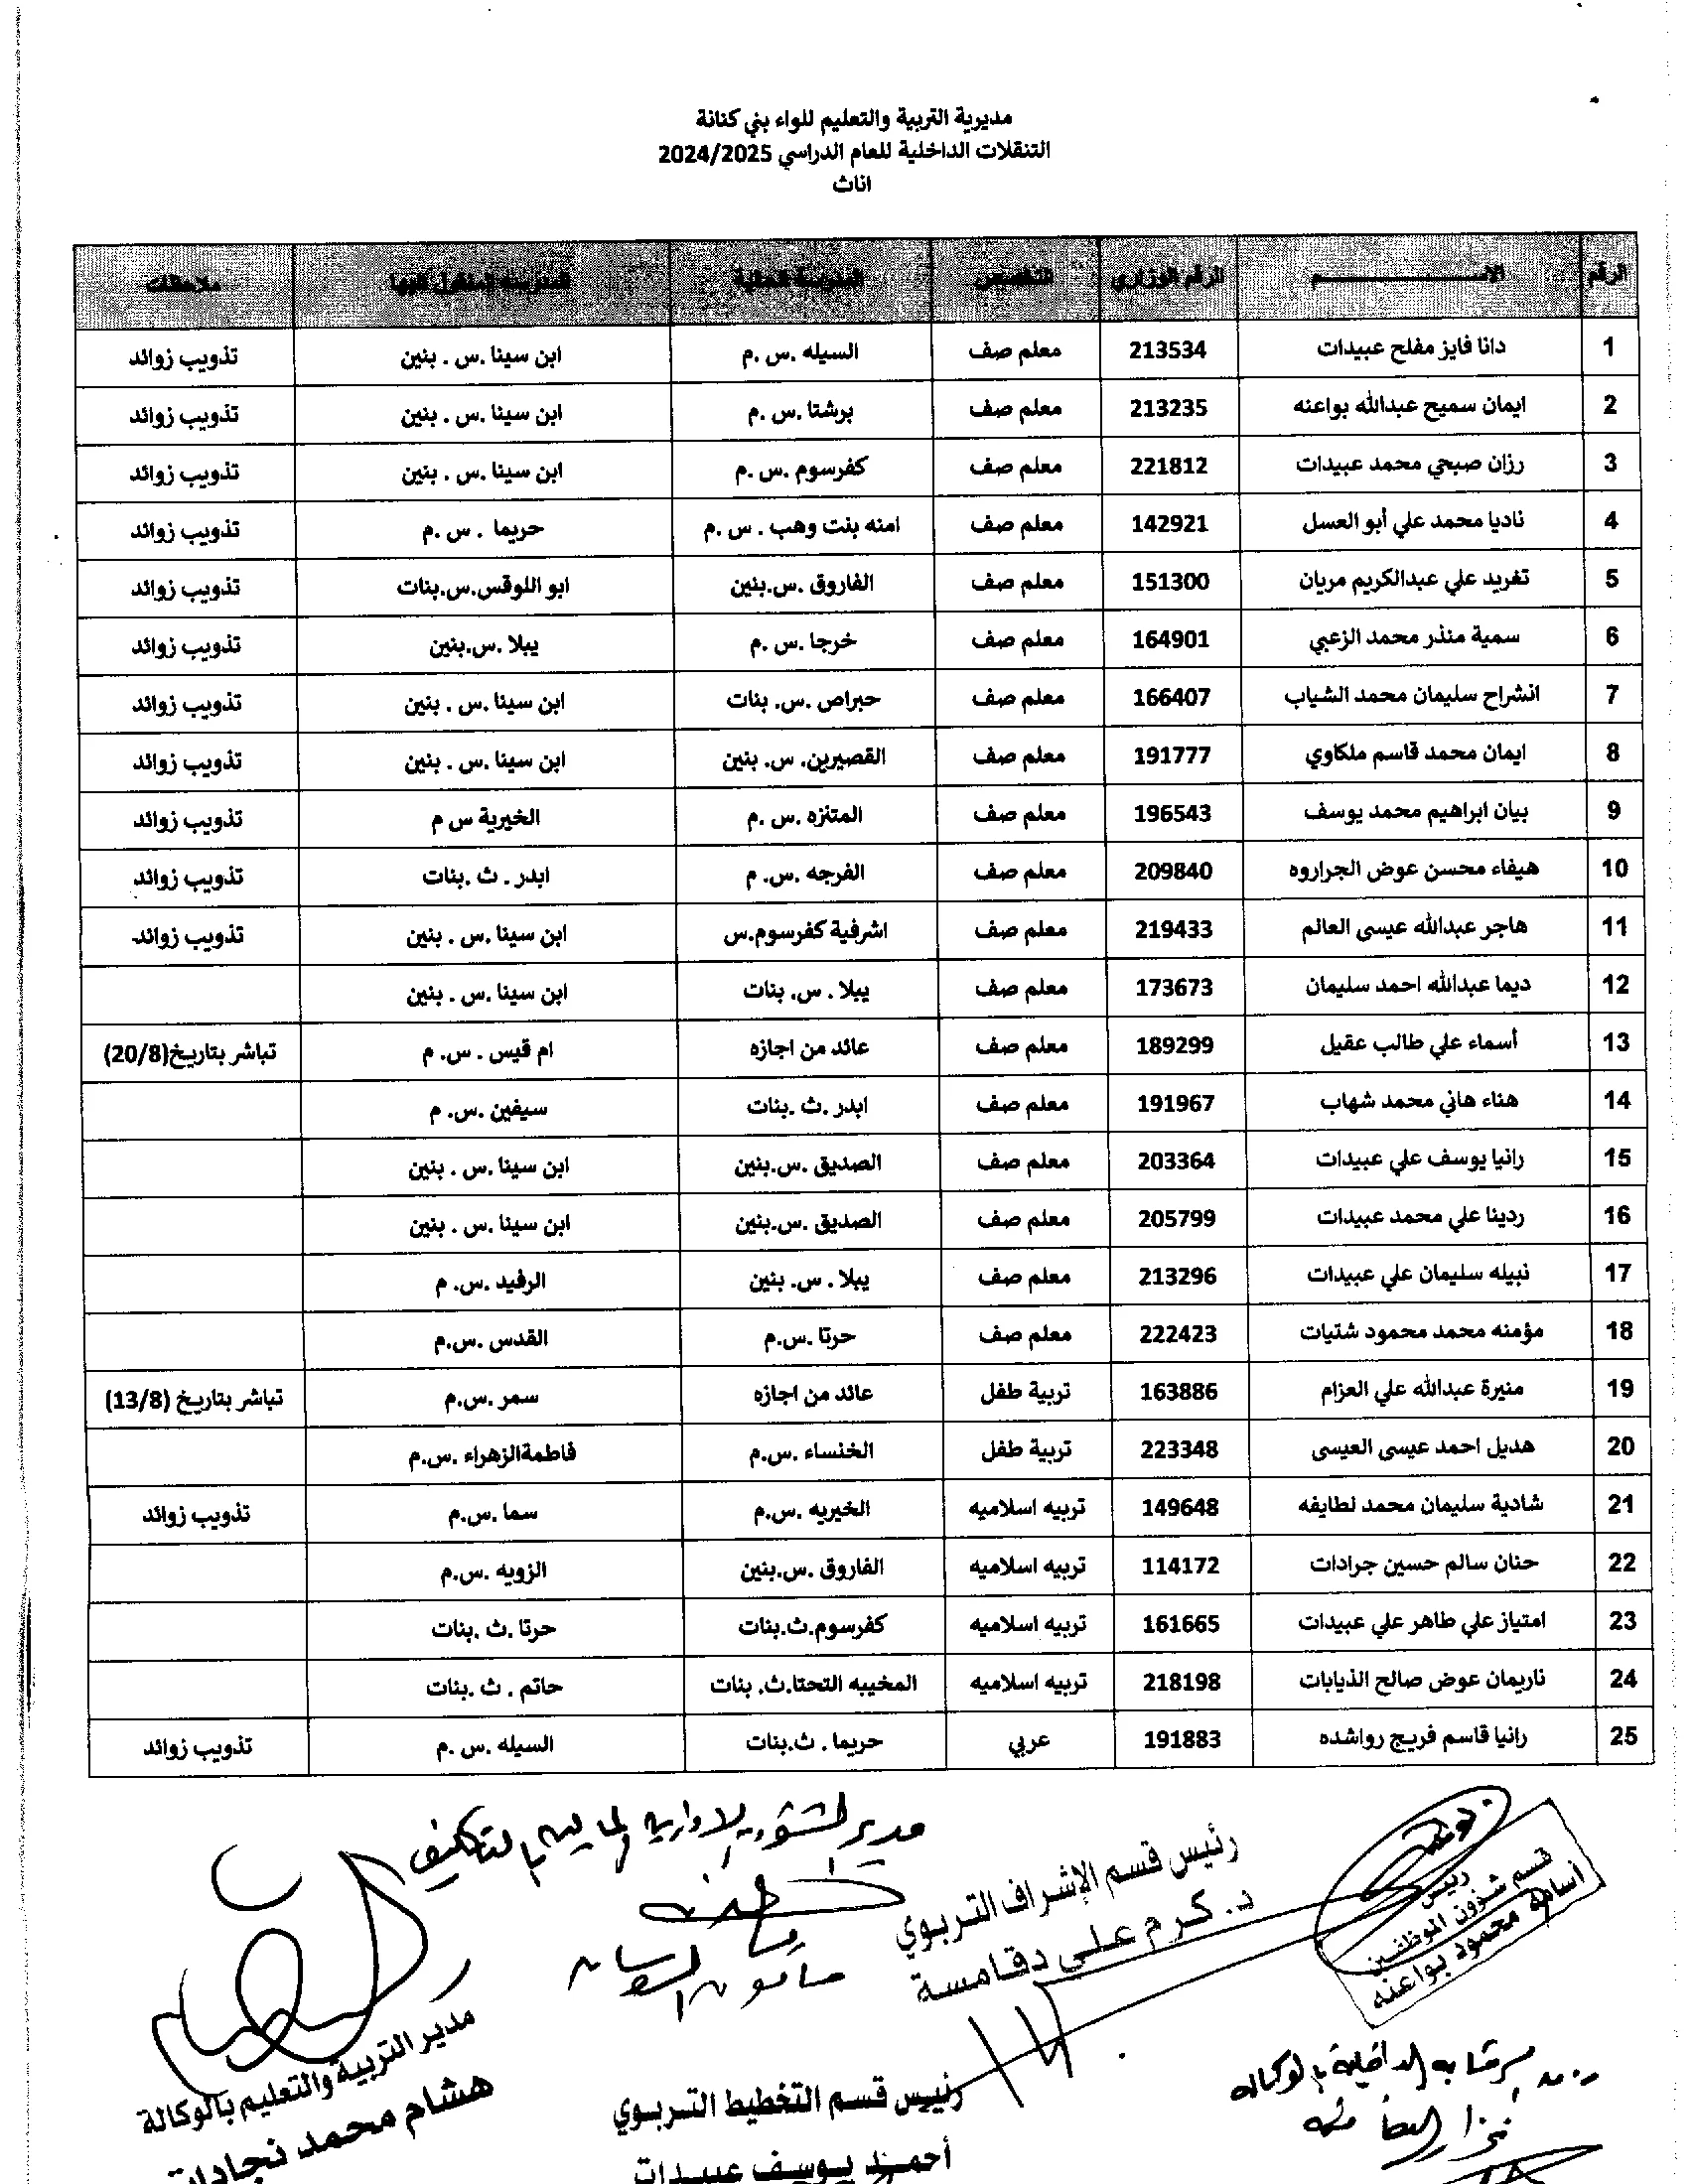 مديرية التربية والتعليم للواء بني كنانة
التنقلات الداخلية للعام الدراسي 2024/2025
اناث
الرقم الاســـــم الرقم الوزاري التخصص المدرسة الحالية المدرسة المنقول اليها ملاحظات
1 دانا فايز مفلح عبيدات 213534 معلم صف السيله .س .م ابن سينا .س . بنين تذويب زوائد
2 ايمان سميح عبدالله بواعنه 213235 معلم صف برشتا .س .م ابن سينا .س . بنين تذويب زوائد
3 رزان صبحي محمد عبيدات 221812 معلم صف كفرسوم .س .م ابن سينا .س . بنين تذويب زوائد
4 ناديا محمد علي أبو العسل 142921 معلم صف امنه بنت وهب . س .م حريما . س .م تذويب زوائد
5 تغريد علي عبدالكريم مريان 151300 معلم صف الفاروق .س.بنين ابو اللوقس.س.بنات تذويب زوائد
6 سمية منذر محمد الزعبي 164901 معلم صف خرجا .س .م يبلا .س.بنين تذويب زوائد
7 انشراح سليمان محمد الشياب 166407 معلم صف حبراص .س. بنات ابن سينا .س . بنين تذويب زوائد
8 ايمان محمد قاسم ملكاوي 191777 معلم صف القصيرين. س. بنين ابن سينا .س . بنين تذويب زوائد
9 بيان ابراهيم محمد يوسف 196543 معلم صف المتنزه .س .م الخيرية س م تذويب زوائد
10 هيفاء محسن عوض الجراروه 209840 معلم صف الفرجه .س. م ابدر . ث .بنات تذويب زوائد
11 هاجر عبدالله عيسى العالم 219433 معلم صف اشرفية كفرسوم.س ابن سينا .س . بنين تذويب زوائد
12 ديما عبدالله احمد سليمان 173673 معلم صف يبلا . س. بنات ابن سينا .س . بنين
13 أسماء علي طالب عقيل 189299 معلم صف عائد من اجازه ام قيس . س. م تباشر بتاريخ(20/8)
14 هناء هاني محمد شهاب 191967 معلم صف ابدر .ث .بنات سيفين .س. م
15 رانيا يوسف علي عبيدات 203364 معلم صف الصديق .س.بنين ابن سينا .س . بنين
16 ردينا علي محمد عبيدات 205799 معلم صف الصديق .س.بنين ابن سينا .س . بنين
17 نبيله سليمان علي عبيدات 213296 معلم صف يبلا . س. بنين الرفيد .س. م
18 مؤمنه محمد محمود شتيات 222423 معلم صف حرتا .س.م القدس .س.م
19 منيرة عبدالله علي العزام 163886 تربية طفل عائد من اجازه سمر .س.م تباشر بتاريخ (13/8)
20 هديل احمد عيسى العيسى 223348 تربية طفل الخنساء .س.م فاطمةالزهراء .س.م
21 شادية سليمان محمد لطايفه 149648 تربيه اسلاميه الخيريه .س.م سما .س.م تذويب زوائد
22 حنان سالم حسين جرادات 114172 تربيه اسلاميه الفاروق .س.بنين الزويه .س.م
23 امتياز علي طاهر علي عبيدات 161665 تربيه اسلاميه كفرسوم.ث.بنات حرتا .ث .بنات
24 ناريمان عوض صالح الذيابات 218198 تربيه اسلاميه المخيبه التحتا.ث. بنات حاتم . ث .بنات
25 رانيا قاسم فريج رواشده 191883 عربي حريما . ث.بنات السيله .س .م تذويب زوائد
رئيس
قسم شؤون الموظفين
أسامه محمود بواعنه
رئيس قسم الإشراف التربوي
د. كرم علي دقامسة
مدير الشؤون الادارية والمالية بالتكليف
مدير التربية والتعليم بالوكالة
هشام محمد نجادات
رئيس قسم التخطيط التربوي
أحمد يوسف عبيدات
الداخلية بالوكالة